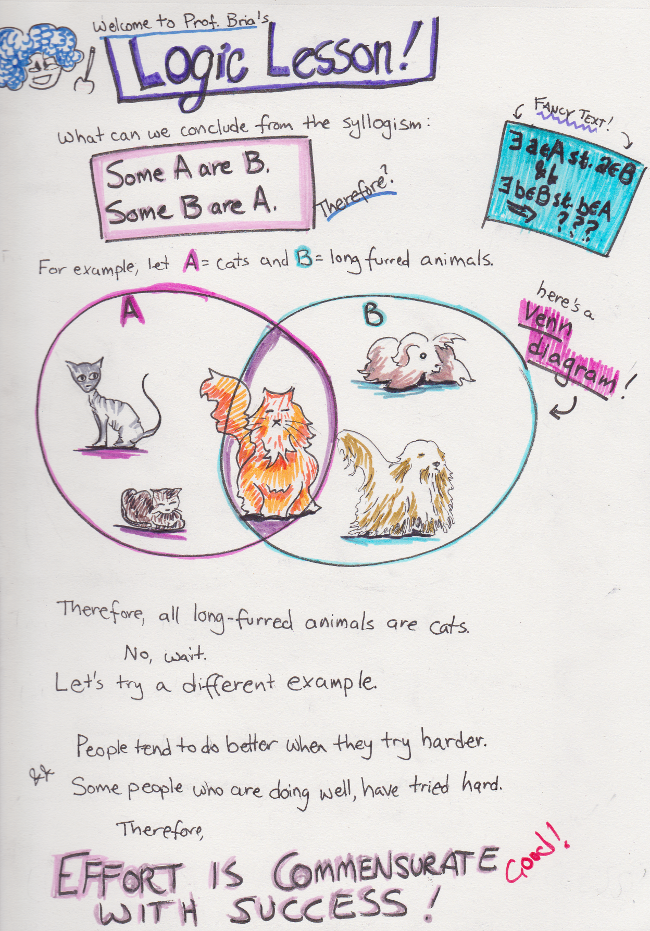 Welcome to Prof. Bria's
Logic Lesson!
What can we conclude from the syllogism:
Some A are B.
Some B are A.
Therefore?
FANCY TEXT!
∃a∈A st. a∈B
&&
∃b∈B st. b∈A
⇒ ???
For example, let A = cats and B = long furred animals.
A
B
here's a
Venn
diagram!
Therefore, all long-furred animals are cats.
No, wait.
Let's try a different example.
People tend to do better when they try harder.
&&
Some people who are doing well, have tried hard.
Therefore,
EFFORT IS COMMENSURATE
WITH SUCCESS!
Good!